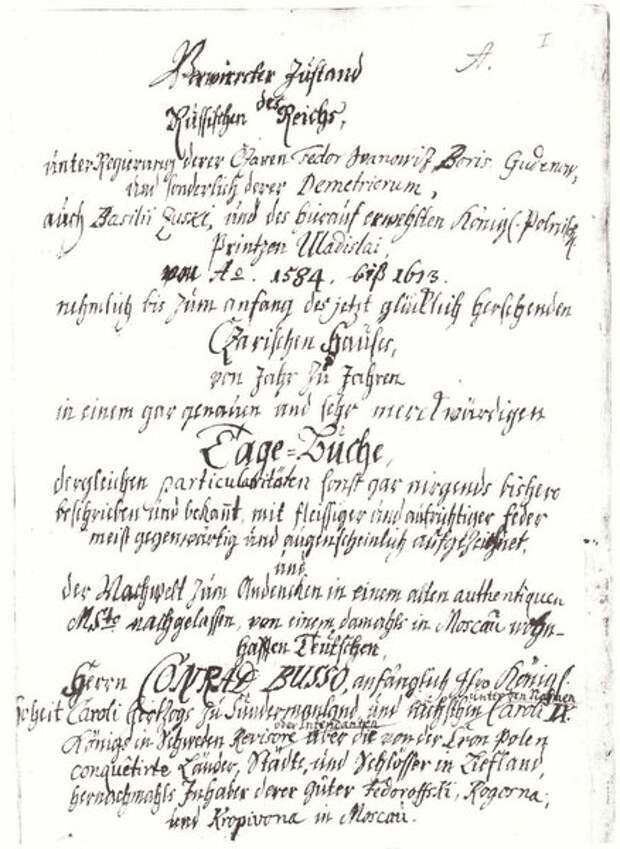 A. I
Verwirrter Zustand
des
Russischen Reichs,
unter Regierung derer Czaren Fedor Ivanowitz, Boris Gudenow,
und sonderlich derer Demetriorum,
auch Basilii Zuski, und des hierauf erwehlten Königl. Polnisch.
Printzen Uladislai,
von Ao. 1584. biß 1613.
nehmlich bis zum anfang des jetzt glücklich herschenden
Czarischen Hauses,
von Jahr zu Jahren
in einem gar genauen und sehr merckwürdigen
Tage=Buche,
dergleichen particularitäten sonst gar nirgends bishero
beschrieben und bekant, mit fleissiger und aufrichtiger feder
meist gegenwärtig und augenscheinlich aufgezeichnet,
und
der Nachwelt zum Andencken in einem alten authentiquen
MSto nachgelassen, von einem damahls in Moscau wohn-
hafften Teutschen,
Herrn CONRAD BUSSO, anfänglich Ihro Königl.
unter den Nahmen
Hoheit Caroli Hertzogs zu Sudermanland und Caroli IX.
oder Intendanten
Königs in Schweden Revisore über die von der Cron Polen
conquetirte Länder, Städte, und Schlösser in Liefland,
hernachmahls Inhaber derer Güter Fedoroffski, Rogosna,
und Kropivona in Moscau.